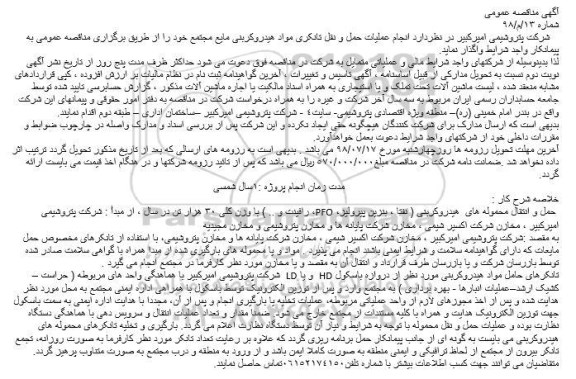 آگهی مناقصه عمومی
شماره ۱۳/م/۹۸
شرکت پتروشیمی امیرکبیر در نظردارد انجام عملیات حمل و نقل تانکری مواد هیدروکربنی مایع مجتمع خود را از طریق برگزاری مناقصه عمومی به
پیمانکار واجد شرایط واگذار نماید.
لذا بدینوسیله از شرکتهای واجد شرایط مالی و عملیاتی متمایل به شرکت در مناقصه فوق دعوت می شود حداکثر ظرف مدت پنج روز از تاریخ نشر آگهی
نوبت دوم نسبت به تحویل مدارکی از قبیل اساسنامه ، آگهی تاسیس و تغییرات ، آخرین گواهینامه ثبت نام در نظام مالیات بر ارزش افزوده ، کپی قراردادهای
مشابه منعقد شده ، لیست ماشین آلات تحت تملک و یا استیجاری به همراه اسناد مالکیت یا اجاره ماشین آلات مذکور ، گزارش حسابرسی تایید شده توسط
جامعه حسابداران رسمی ایران مربوط به سه سال آخر شرکت و غیره را به همراه درخواست شرکت در مناقصه به دفتر امور حقوقی و پیمانهای این شرکت
واقع در بندر امام خمینی (ره)– منطقه ویژه اقتصادی پتروشیمی- سایت٤ - شرکت پتروشیمی امیرکبیر –ساختمان اداری – طبقه دوم اقدام نمایند.
بدیهی است که ارسال مدارک برای شرکت کنندگان هیچگونه حقی ایجاد نکرده و این شرکت پس از بررسی اسناد و مدارک واصله در چارچوب ضوابط و
مقررات داخلی خود از شرکتهای واجد شرایط دعوت بعمل خواهدآورد.
آخرین مهلت تحویل رزومه ها روزچهارشنبه مورخ ۹۸/۰۷/۱۷ می باشد . بدیهی است به رزومه های ارسالی که بعد از تاریخ مذکور تحویل گردد ترتیب اثر
داده نخواهد شد .ضمانت نامه شرکت در مناقصه مبلغ ۵۷۰/۰۰۰/۰۰۰ ریال می باشد که پس از تائید رزومه شرکتها و در هنگام اخذ قیمت می بایست ارائه
گردد.
مدت زمان انجام پروژه :۱سال شمسی
خلاصه شرح کار :
حمل و انتقال محموله های هیدروکربنی ( نفتا ، بنزین پیرولیز، PFO، رافینت و ... ) با وزن کلی ۳۰ هزار تن در سال ، از مبدأ : شرکت پتروشیمی
امیرکبیر ، مخازن شرکت اکسیر شیمی ، مخازن شرکت پایانه ها و مخازن پتروشیمی و مخازن مجیدیه
به مقصد :شرکت پتروشیمی امیرکبیر ، مخازن شرکت اکسیر شیمی ، مخازن شرکت پایانه ها و مخازن پتروشیمی، با استفاده از تانکرهای مخصوص حمل
مایعات که دارای گواهینامه سلامت و شرایط ایمنی باشند انجام می پذیرد . مواد و یا محموله های بارگیری شده از مبدا همراه با گواهی سلامت صادر شده
توسط بازرسان شرکت و یا بازرسان طرف قرارداد و انتقال آن به مقصد و یا مخازن مورد نظر کارفرما در مجتمع انجام می گردد .
تانکرهای حامل مواد هیدروکربنی مورد نظر از دروازه باسکول HD و یا LD شرکت پتروشیمی امیرکبیر با هماهنگی واحد های مربوطه ( حراست –
کشیک ارشد–عملیات انبارها - بهره برداری ) به مجتمع وارد و پس از توزین الکترونیک توسط باسکول، با همراهی اداره ایمنی مجتمع به محل مورد نظر
هدایت شده و پس از اخذ مجوزهای لازم از واحد عملیاتی مربوطه، عملیات تخلیه یا بارگیری انجام و پس از آن، مجددا با هدایت اداره ایمنی به سمت باسکول
جهت توزین الکترونیک هدایت و همراه با کلیه مستندات از مجتمع خارج می شود. ضمنا مقدار و تعداد عملیات انتقال و سرویس دهی با هماهنگی دستگاه
نظارت بوده و عملیات حمل و نقل محموله با توجه به شرایط و نیاز آن توسط دستگاه نظارت اعلام می گردد. بارگیری و تخلیه تانکرهای محموله های
هیدروکربنی می بایست به گونه ای از جانب پیمانکار حمل برنامه ریزی گردد که علاوه بر رعایت تعداد تانکر مورد نظر کارفرما به صورت روزانه، تجمع
تانکر بیرون از مجتمع از لحاظ ترافیکی و ایمنی منطقه به صورت کاملا ایمن باشد و از ورود به منطقه و درب مجتمع به صورت متناوب پرهیز گردد.
متقاضیان می توانند جهت کسب اطلاعات بیشتر با شماره تلفن ۰۶۱۵۲۱۷٤۱۵۰ تماس حاصل نمایند.